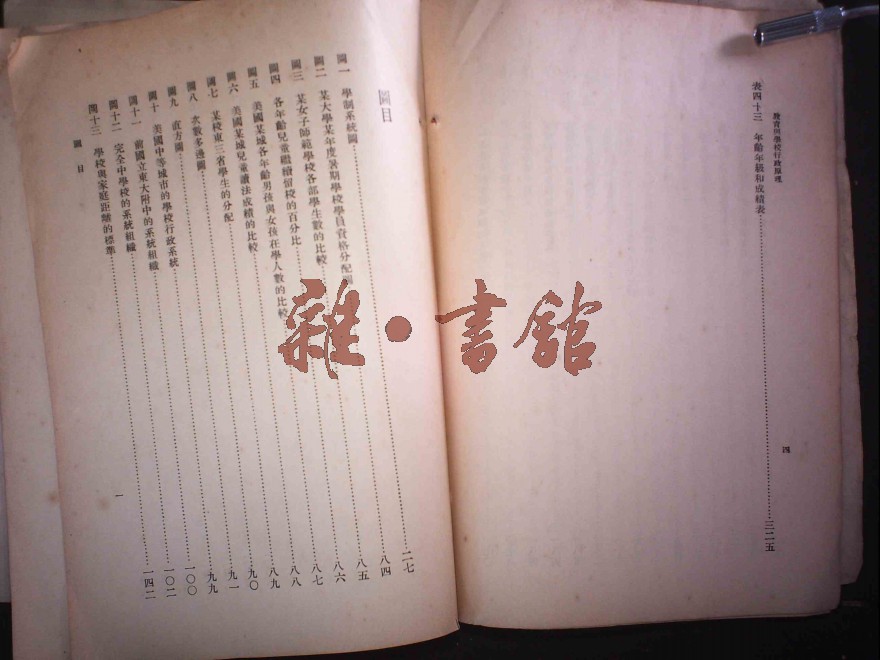 教育與學校行政原理
表四十三 年齡年級和成績表……三二五
四
圖目
圖一 學制系統圖……二七
圖二 某大學某年度暑期學校學員資格分配圖……八四
圖三 某女子師範學校各部學生數的比較……八五
圖四 各年齡兒童繼續留校的百分比……八六
圖五 美國某城各年齡男孩與女孩在學人數的比較……八七
圖六 美國某城兒童讀法成績的比較……八八
圖七 某校東三省學生的分配……八九
圖八 次數多邊圖……九〇
圖九 直方圖……九一
圖十 美國中等城市的學校行政系統……九九
圖十一 前國立東大附中的系統組織……一〇〇
圖十二 完全中學校的系統組織……一〇二
圖十三 學校與家庭距離的標準……一四二
圖目
一
雜·書館